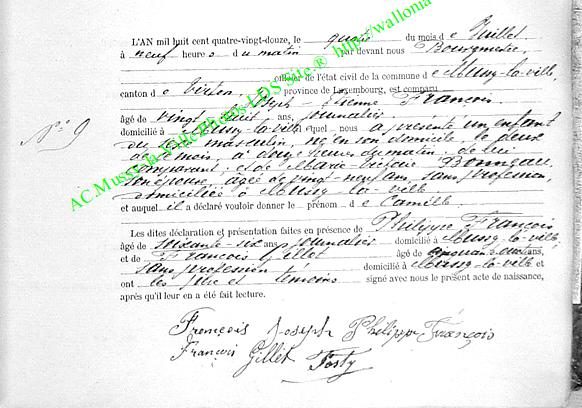 L'AN mil huit cent quatre-vingt-douze, le quatre du mois de Juillet
à neuf heures du matin par devant nous Bourgmestre,
officier de l'état civil de la commune de Mussy-la-ville,
canton de Virton, province de Luxembourg, est comparu
Joseph-Etienne François
âgé de vingt-huit ans, journalier
domicilié à Mussy-la-ville lequel nous a présenté un enfant
du sexe masculin, né en son domicile, le deux
de ce mois, à douze heures du matin, de lui
comparant, et de Marie
son épouse, âgée de vingt-neuf ans, sans profession,
domiciliée à Mussy-la-ville
et auquel il a déclaré vouloir donner le prénom de Camille
Les dites déclaration et présentation faites en présence de Philippe François
âgé de soixante-six ans journalier domicilié à Mussy-la-ville,
et de François Gillet âgé de ans,
sans profession domicilié à Mussy-la-ville et
ont les père et témoins signé avec nous le présent acte de naissance,
après qu'il leur en a été fait lecture.
François Joseph Philippe François
François Gillet
N° 9
AC Mussy-la-Ville Photos LDS Site ® http://wallonia